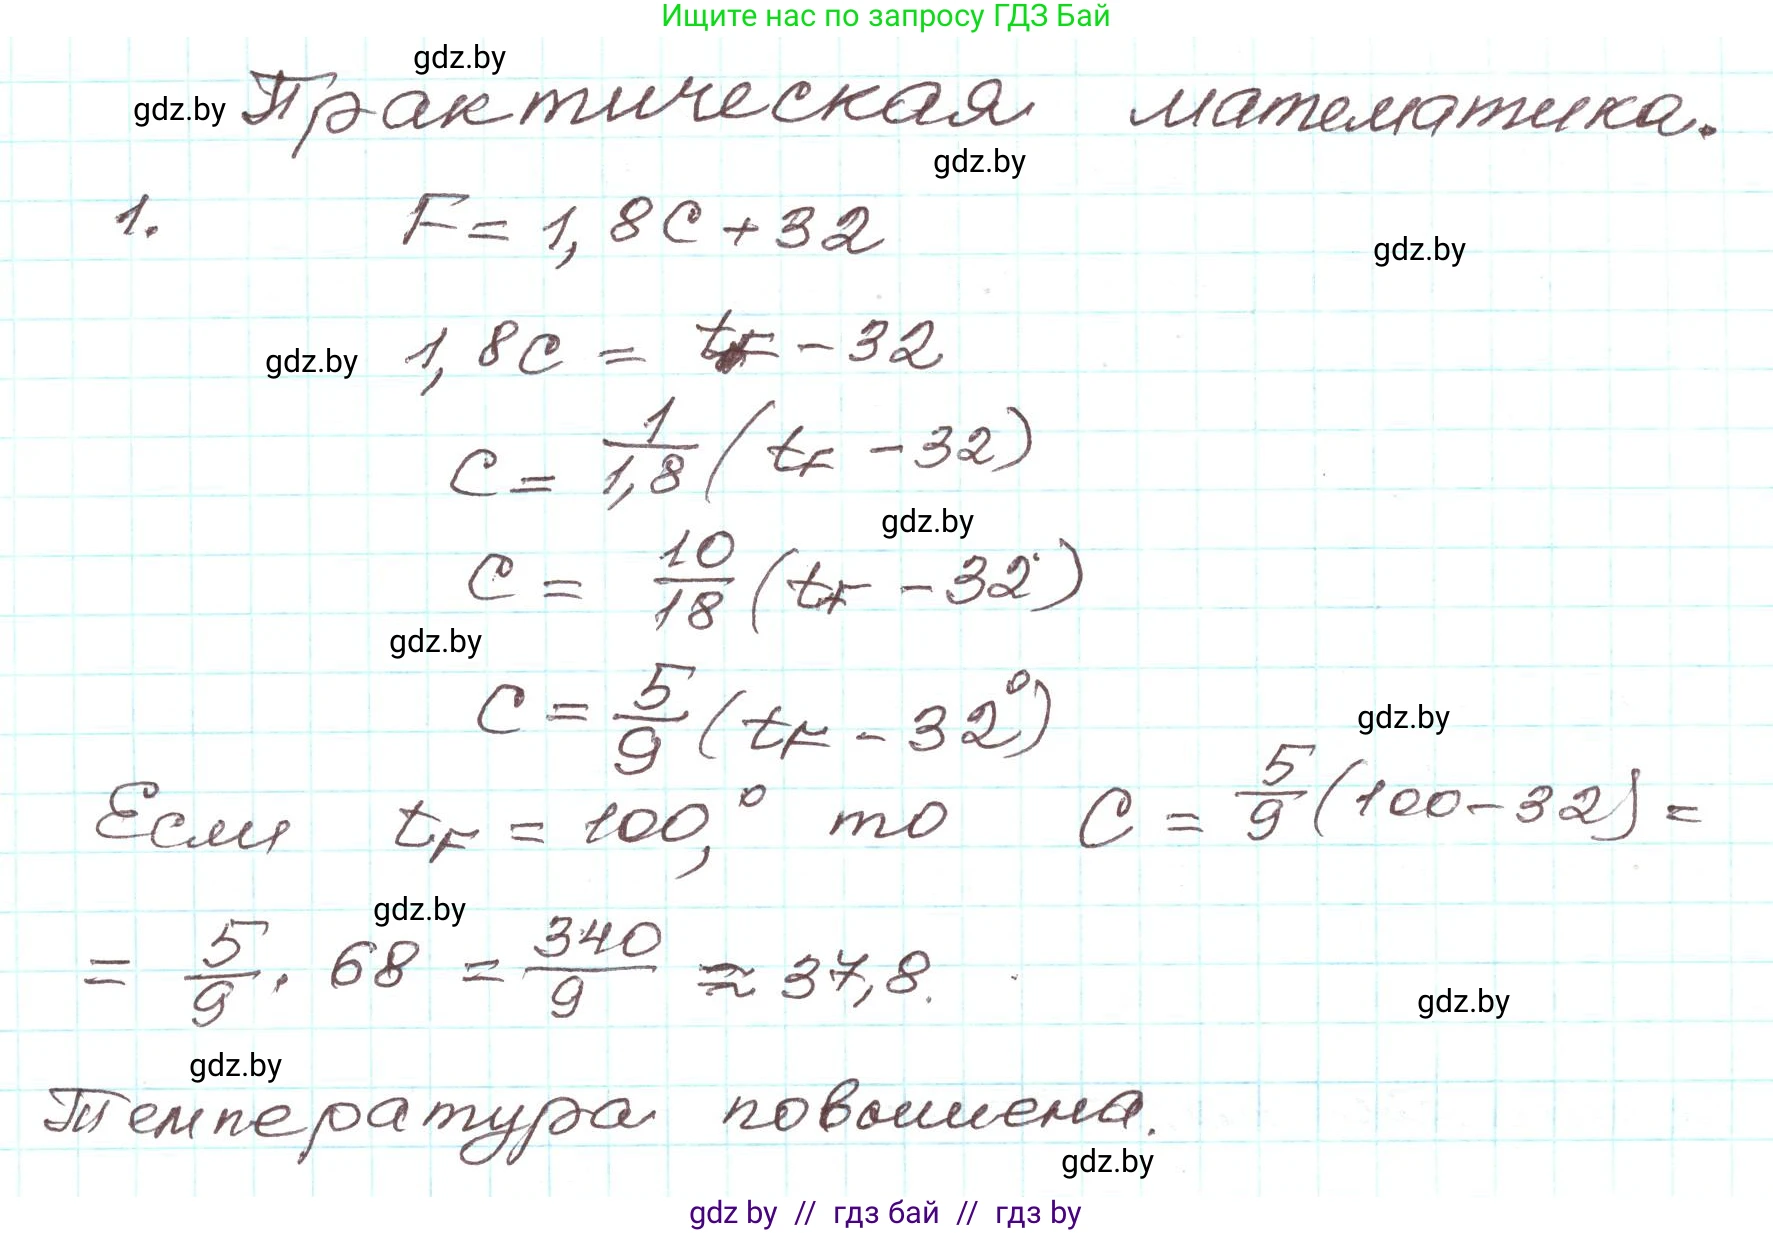 Ищите нас по запросу ГДЗ Бай
gdz.by
gdz.by Практическая математика.
gdz.by
1. F = 1,8C + 32
gdz.by
gdz.by 1,8C = tF - 32
C = 1/1,8 (tF - 32)
gdz.by
C = 10/18 (tF - 32°)
gdz.by
C = 5/9 (tF - 32°)
gdz.by
Если tF = 100°, то C = 5/9 (100 - 32) =
gdz.by
= 5/9 · 68 = 340/9 ≈ 37,8.
gdz.by
gdz.by
Температура повышена.
gdz.by
gdz by // гдз бай // гдз by